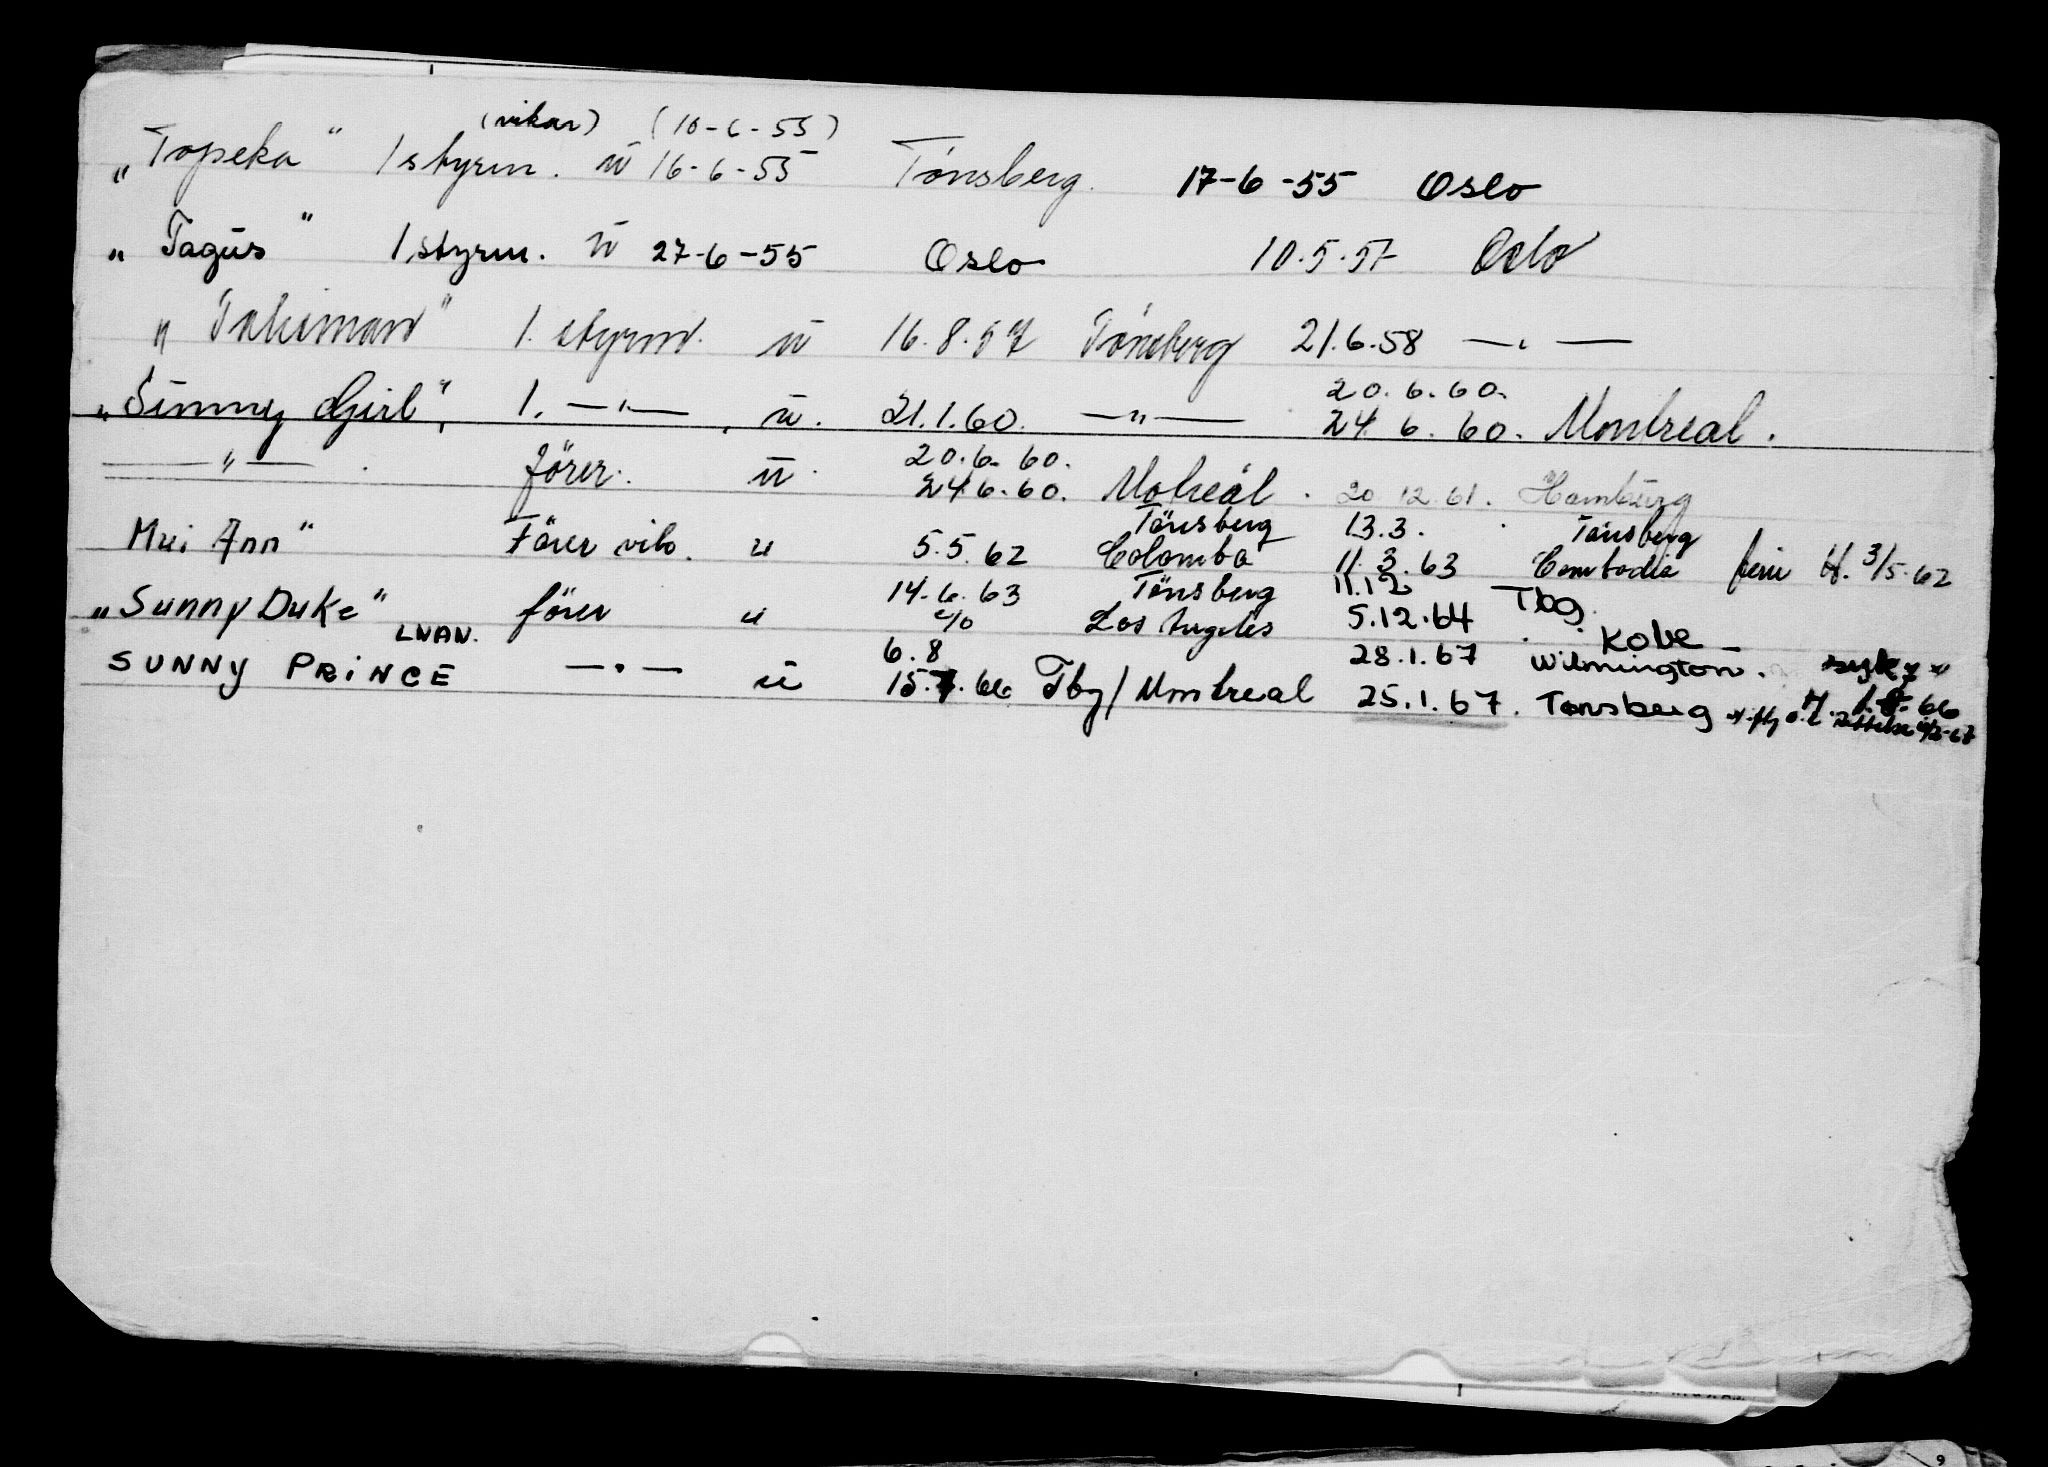 (vikar) (10-6-55)
„Topeka" 1 styrm. u 16-6-55 Tönsberg. 17-6-55 Oslo
„Tagus" 1 styrm. u 27-6-55 Oslo 10.5.57 Oslo
„Talisman" 1. styrm. u 16.8.57 Tönsberg 21.6.58 —"—
20.6.60.
„Sunny Girl", 1. —"—, u. 21.1.60. —"— 24.6.60. Montreal.
20.6.60.
—"—. förer. u. 24.6.60. Motreal. 20.12.61. Hamburg
Tönsberg 13.3. Tönsberg
Mui Ann" Förer vik. u 5.5.62 Colombo 11.3.63 Cambodia H. 3/5.62
14.6.63 Tönsberg 11.12 Tbg.
„Sunny Duke" förer u Los Angeles 5.12.64 Kobe
LNAN. 6.8 28.1.67 Wilmington.
SUNNY PRINCE —"— u 15.7.66 Tbg/Montreal 25.1.67. Tønsberg